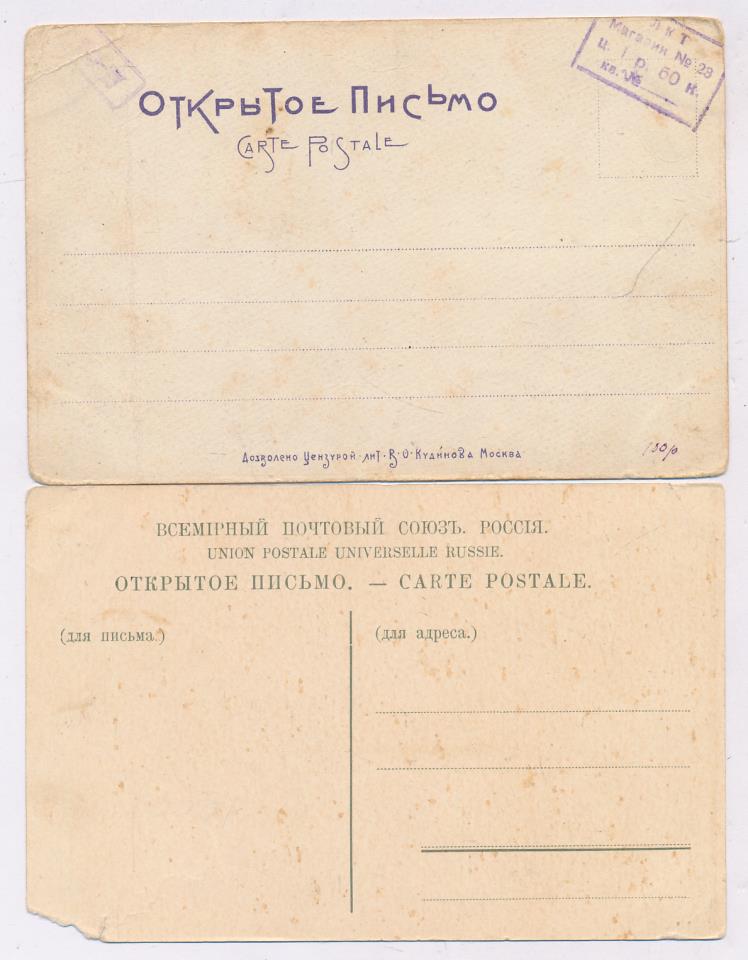 ЛКТ
Магазин № 28
ц. 1 р. 60 к.
кв. №
Открытое Письмо
Carte Postale
Дозволено Цензурой · лит · В · О · Кудинова Москва
130р
ВСЕМІРНЫЙ ПОЧТОВЫЙ СОЮЗЪ. РОССІЯ.
UNION POSTALE UNIVERSELLE RUSSIE.
ОТКРЫТОЕ ПИСЬМО. — CARTE POSTALE.
(для письма.)
(для адреса.)